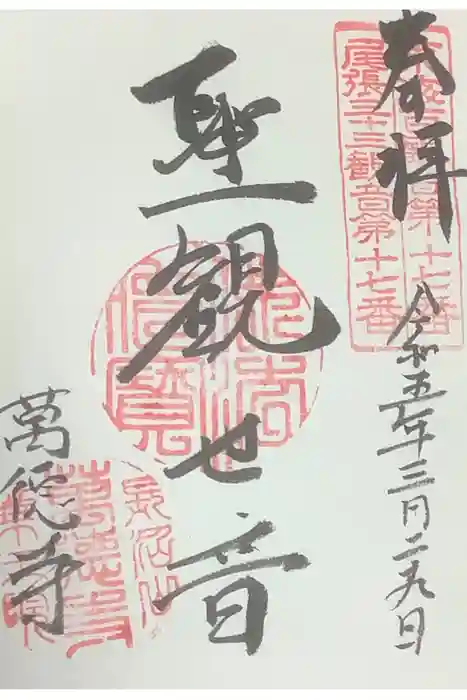 奉拝
尾張三十三観音第十七番
令和五年三月二九日
聖観世音
萬徳寺